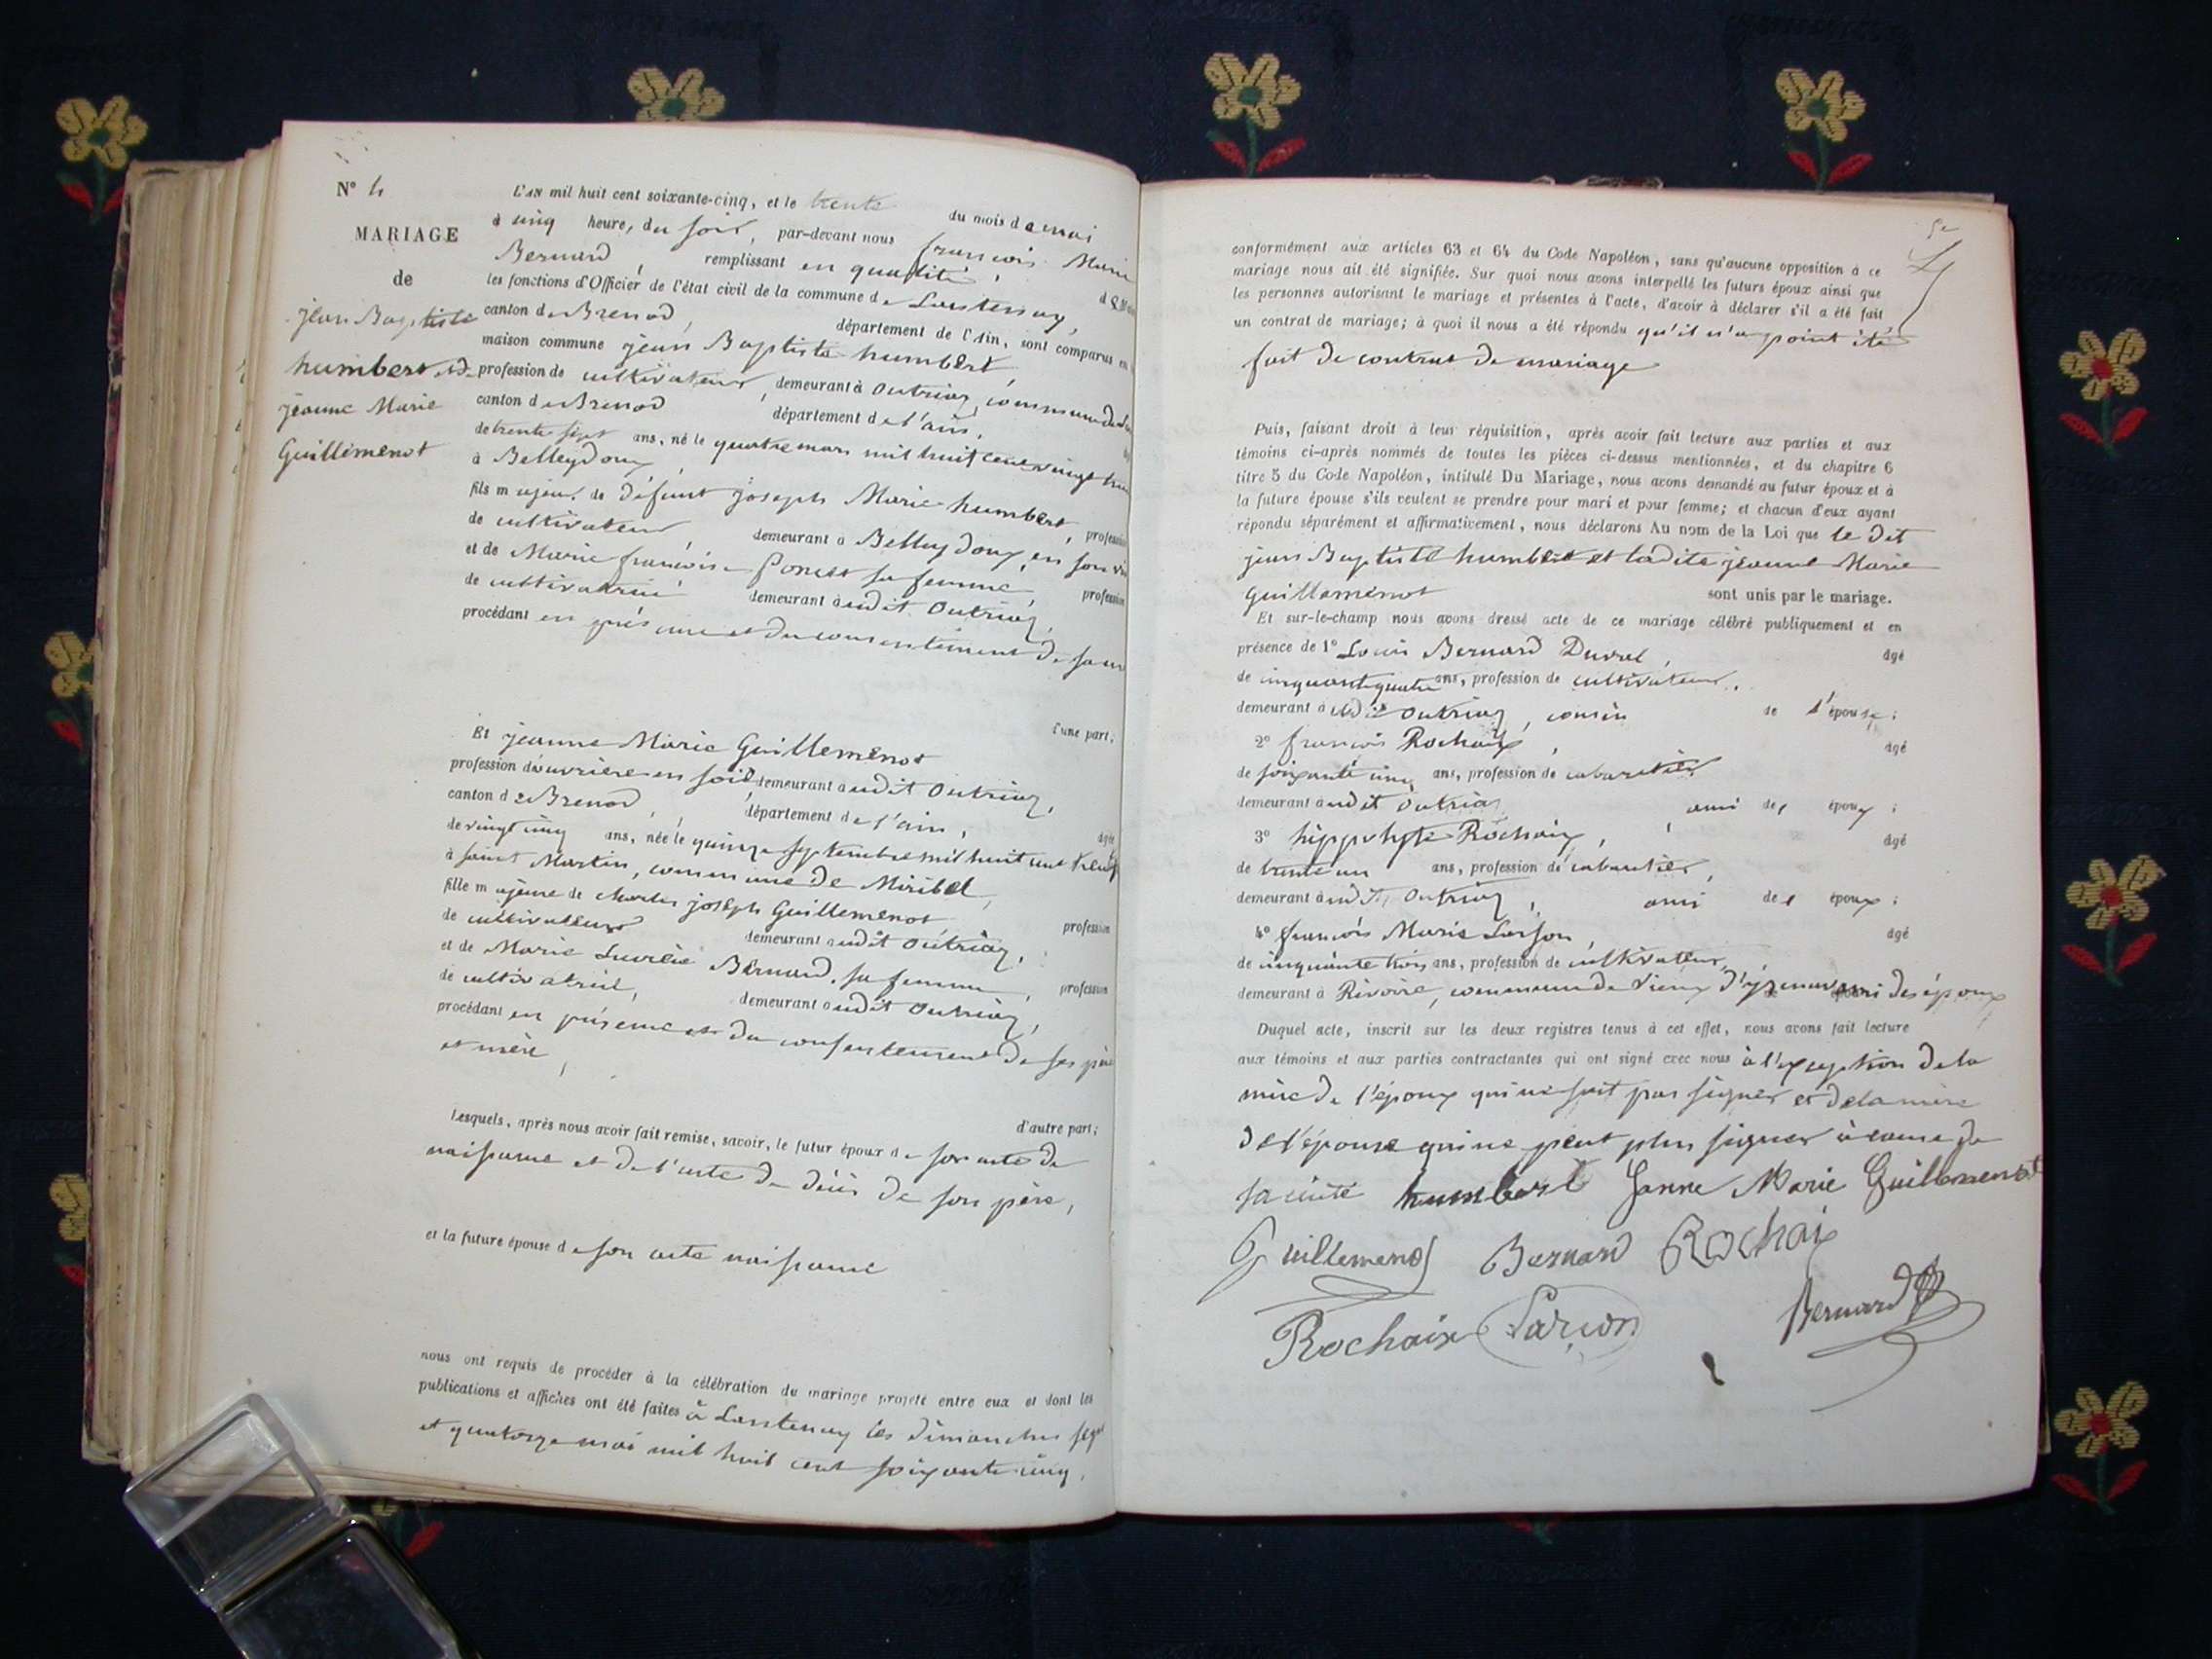 N° 4
MARIAGE
de
jean Baptiste
humbert et de
jeanne Marie
Guillemenot
L'AN mil huit cent soixante-cinq, et le trente du mois de mai
à cinq heure, du soir, par-devant nous francois Marie
Bernard, remplissant en qualité,
les fonctions d'Officier de l'état civil de la commune de Lantenay,
canton de Brenod, département de l'Ain, sont comparus en
maison commune jean Baptiste humbert,
profession de cultivateur, demeurant à Outriaz, commune de
canton de Brenod département de l'ain,
de trente sept ans, né le quatre mars mil huit cent vingt huit
à Belleydoux
fils majeur de défunt joseph Marie humbert, profession
de cultivateur, demeurant à Belleydoux, en son
et de Marie francoise Poncet sa femme, profession
de cultivatrice demeurant audit Outriaz,
procédant en présence et du consentement de sa
d'une part;
Et jeanne Marie Guillemenot
profession d'ouvrière en soie, demeurant audit Outriaz,
canton de Brenod, département de l'ain, âgée
de vingt cinq ans, née le quinze septembre mil huit cent trente
à saint Martin, commune de Miribel,
fille majeure de charles joseph Guillemenot profession
de cultivateur demeurant audit Outriaz,
et de Marie Lucrèce Bernard, sa femme, profession
de cultivatrice, demeurant audit Outriaz,
procédant en présence et du consentement de ses père
et mère,
d'autre part;
Lesquels, après nous avoir fait remise, savoir, le futur époux de son acte de
naissance et de l'acte de décès de son père,
et la future épouse de son acte naissance
nous ont requis de procéder à la célébration du mariage projeté entre eux et dont les
publications et affiches ont été faites à Lantenay les dimanches sept
et quatorze mai mil huit cent soixante cinq,
conformément aux articles 63 et 64 du Code Napoléon, sans qu'aucune opposition à ce
mariage nous ait été signifiée. Sur quoi nous avons interpellé les futurs époux ainsi que
les personnes autorisant le mariage et présentes à l'acte, d'avoir à déclarer s'il a été fait
un contrat de mariage; à quoi il nous a été répondu qu'il n'a point été
fait de contrat de mariage
Puis, faisant droit à leur réquisition, après avoir fait lecture aux parties et aux
témoins ci-après nommés de toutes les pièces ci-dessus mentionnées, et du chapitre 6
titre 5 du Code Napoléon, intitulé Du Mariage, nous avons demandé au futur époux et à
la future épouse s'ils veulent se prendre pour mari et pour femme; et chacun d'eux ayant
répondu séparément et affirmativement, nous déclarons Au nom de la Loi que le dit
jean Baptiste humbert et ladite jeanne Marie
Guillemenot sont unis par le mariage.
Et sur-le-champ nous avons dressé acte de ce mariage célébré publiquement et en
présence de 1° Louis Bernard Duval, âgé
de cinquante quatre ans, profession de cultivateur,
demeurant à udit Outriaz, cousin de l'épouse;
2° francois Rochaix, âgé
de soixante cinq ans, profession de cabaretier
demeurant audit Outriaz ami des époux;
3° hippolyte Rochaix, âgé
de trente un ans, profession de cabaretier,
demeurant audit, Outriaz, ami des époux;
4° francois Marie Larson, âgé
de cinquante trois ans, profession de cultivateur,
demeurant à Rivoire, commune de Vieux d'yzenave ami des époux
Duquel acte, inscrit sur les deux registres tenus à cet effet, nous avons fait lecture
aux témoins et aux parties contractantes qui ont signé avec nous à l'exception de la
mère de l'époux qui ne sait pas signer et de la mère
de l'épouse qui ne peut plus signer à cause de
sa cécité humbert Janne Marie Guillemenot
Guillemenot Bernard Rochaix
Rochaix Larson Bernard